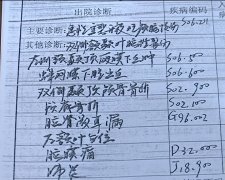 出院诊断 疾病编码
主要诊断: 急性 S06.211
其他诊断: 双侧额叶脑挫裂伤
左侧额颞顶硬膜下血肿 S06.500
蛛网膜下腔出血 S06.600
双侧颞顶颅骨骨折 S02.900
颅底骨折 S02.100
脑脊液耳漏 G96.002
左额叶
脑膜瘤 D32.000
肺炎 J18.900